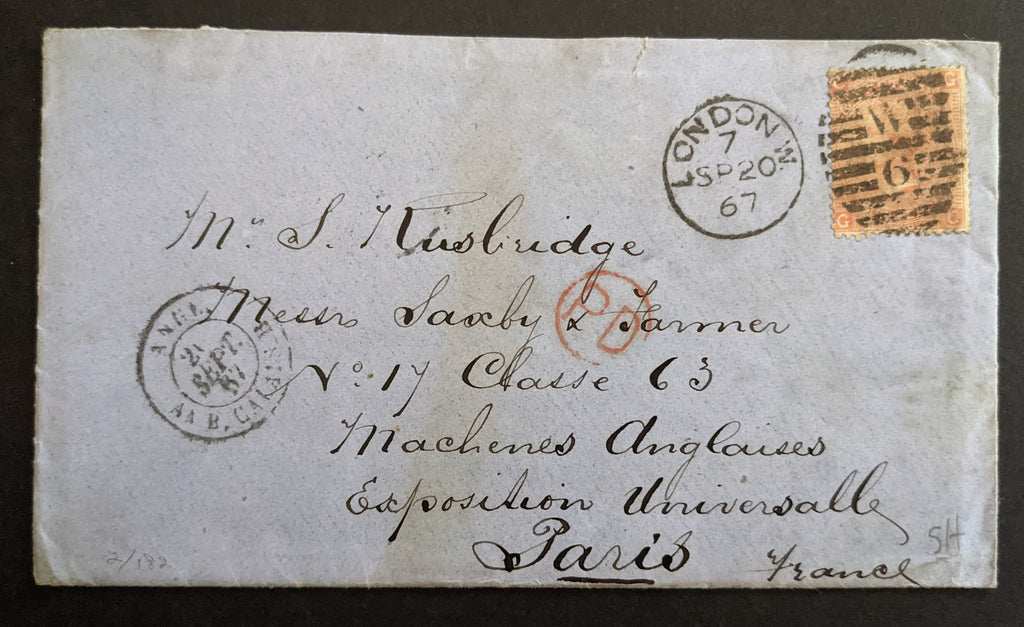 LONDON W
7
SP 20
67
W
6
G
G
Mr. S. Rusbridge
Messrs Saxby & Farmer
No. 17 Classe 63
Machenes Anglaises
Exposition Universalle
Paris
France
PD
ANGL.
21
SEPT.
67
CALAIS
2/182
SH